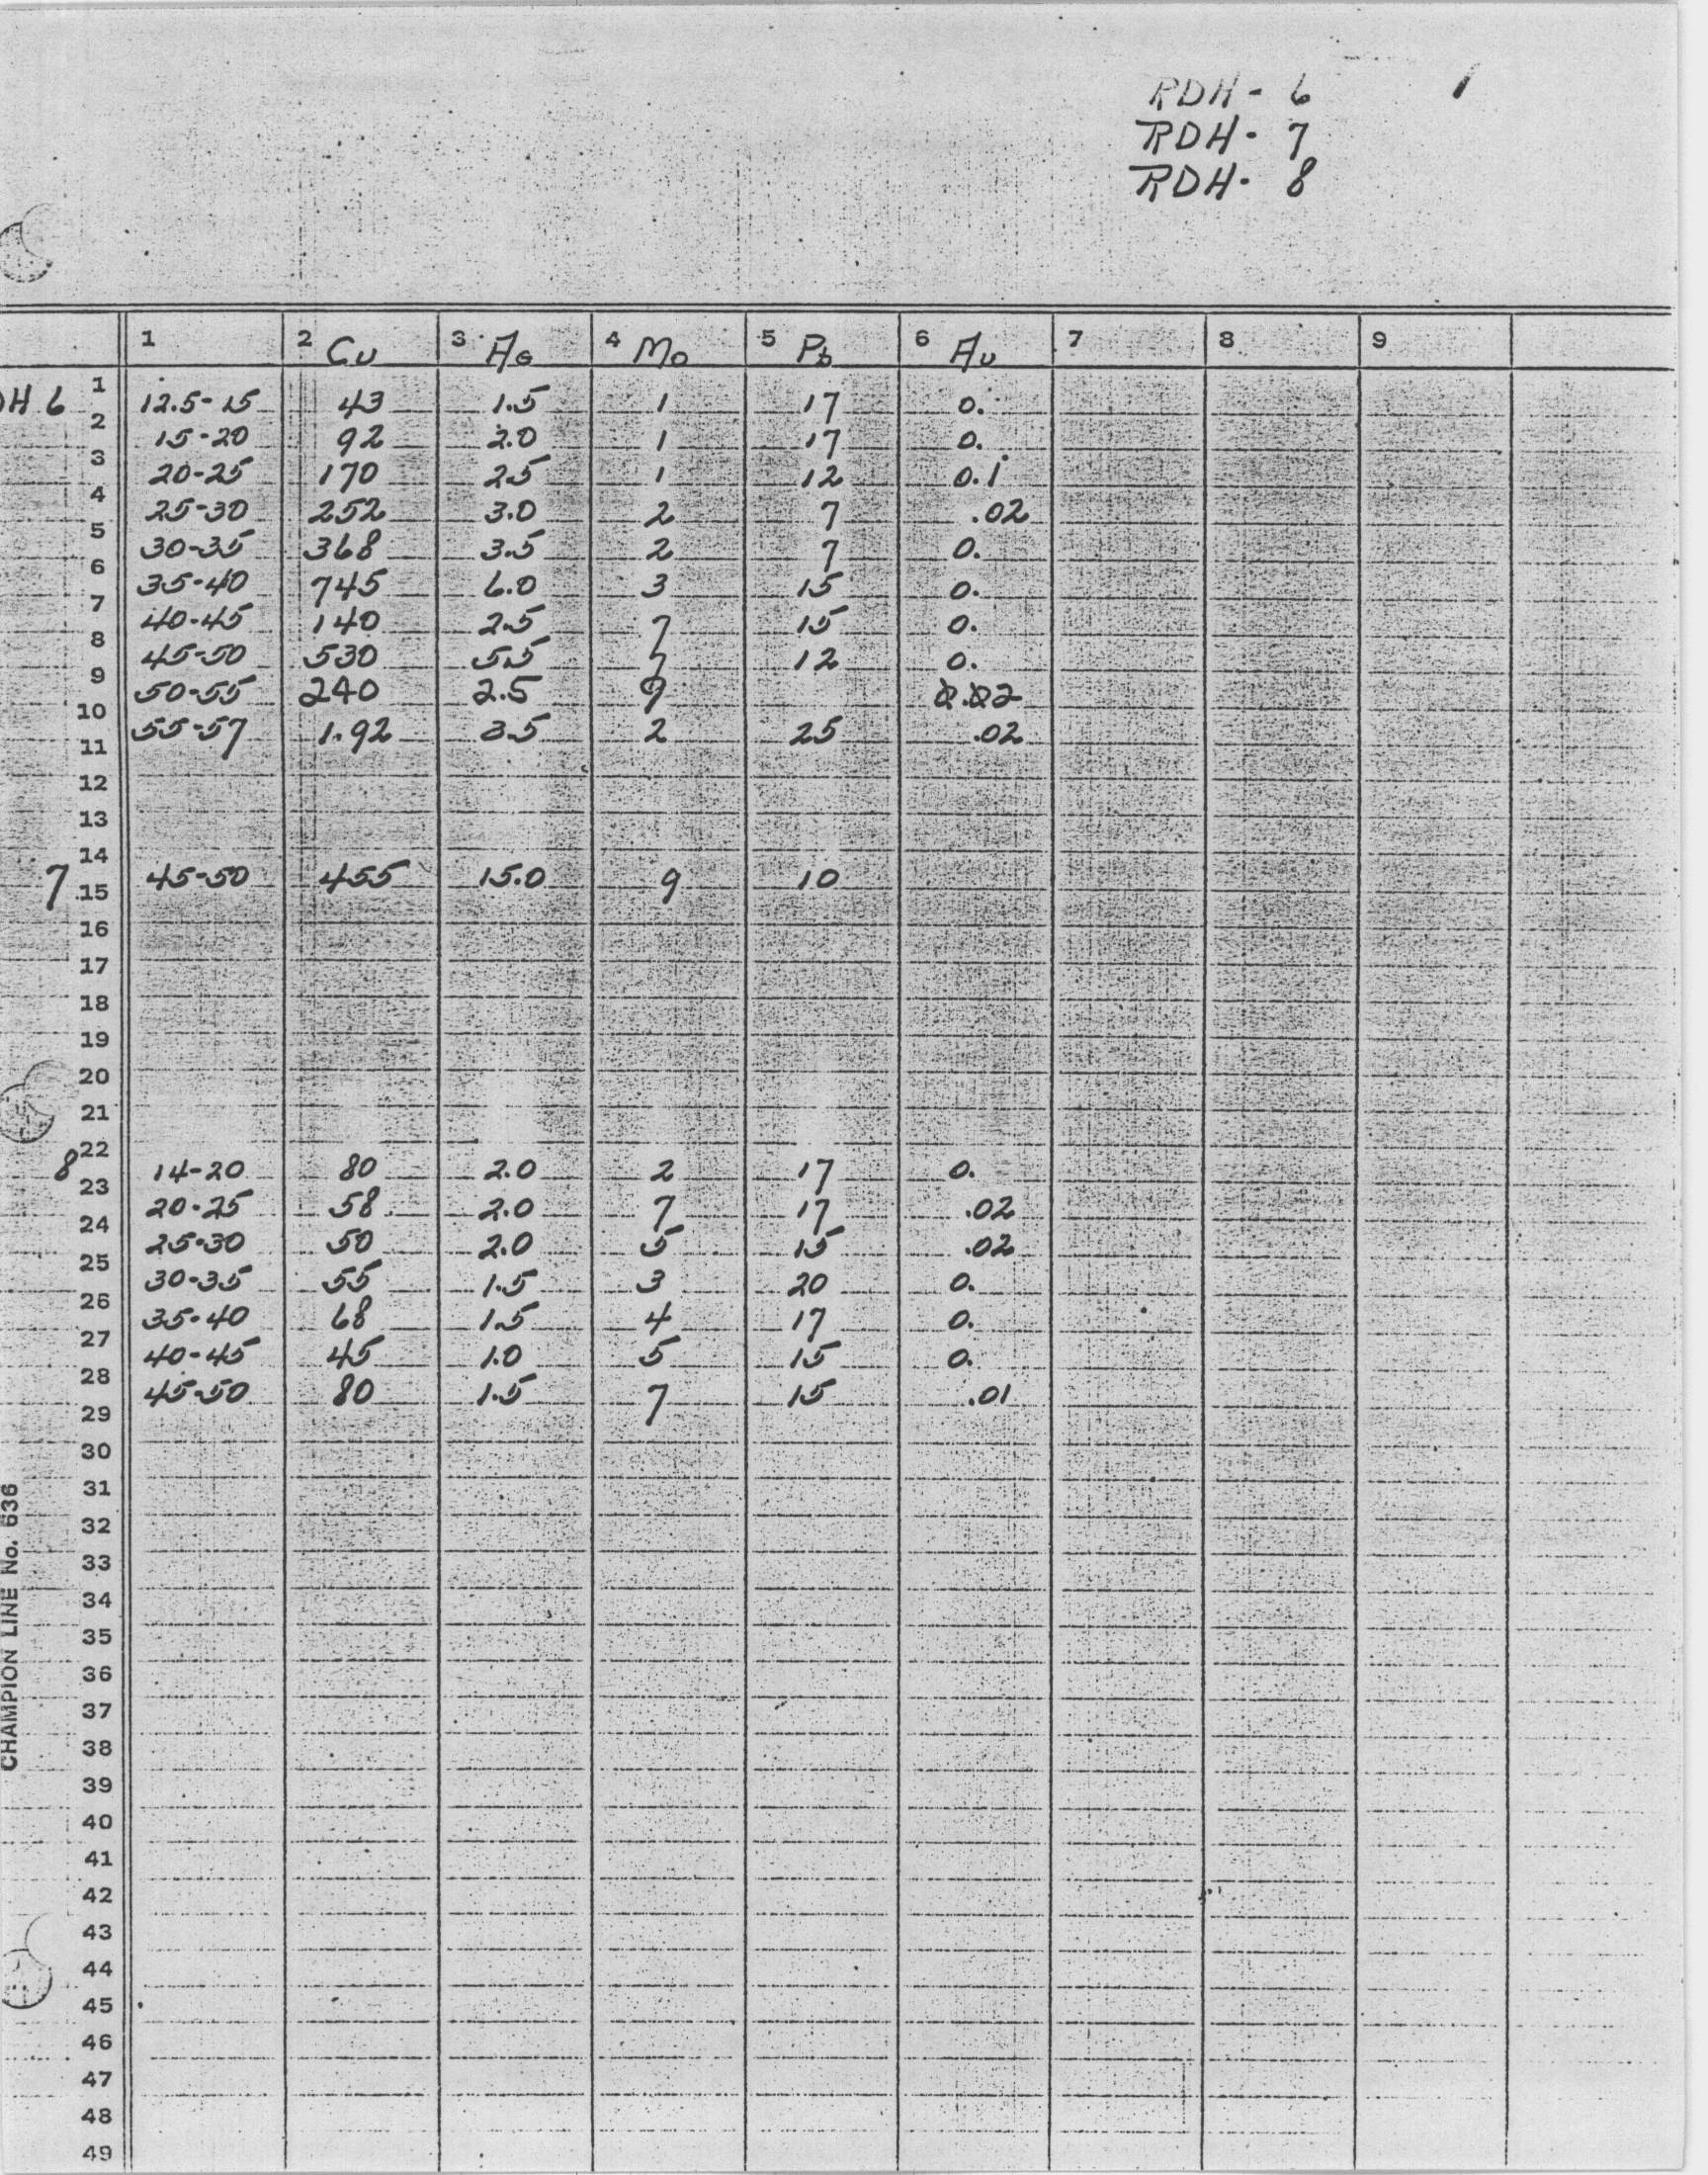 RDH- 6
RDH- 7
RDH- 8
1 2 Cu 3 Ag 4 Mo 5 Pb 6 Au 7 8 9
1
DH 6 12.5-15 43 1.5 1 17 0.
2
15-20 92 2.0 1 17 0.
3
20-25 170 2.5 1 12 0.1
4
25-30 252 3.0 2 7 .02
5
30-35 368 3.5 2 7 0.
6
35-40 745 6.0 3 15 0.
7
40-45 140 2.5 7 15 0.
8
45-50 530 5.5 7 12 0.
9
50-55 240 2.5 9
10
55-57 1.92 3.5 2 25 .02
11
12
13
14
7 45-50 455 15.0 9 10
15
16
17
18
19
20
21
22
8 14-20 80 2.0 2 17 0.
23
20-25 58 2.0 7 17 .02
24
25-30 50 2.0 5 15 .02
25
30-35 55 1.5 3 20 0.
26
35-40 68 1.5 4 17 0.
27
40-45 45 1.0 5 15 0.
28
45-50 80 1.5 7 15 .01
29
30
31
32
33
34
35
36
37
38
39
40
41
42
43
44
45
46
47
48
49
CHAMPION LINE No. 636